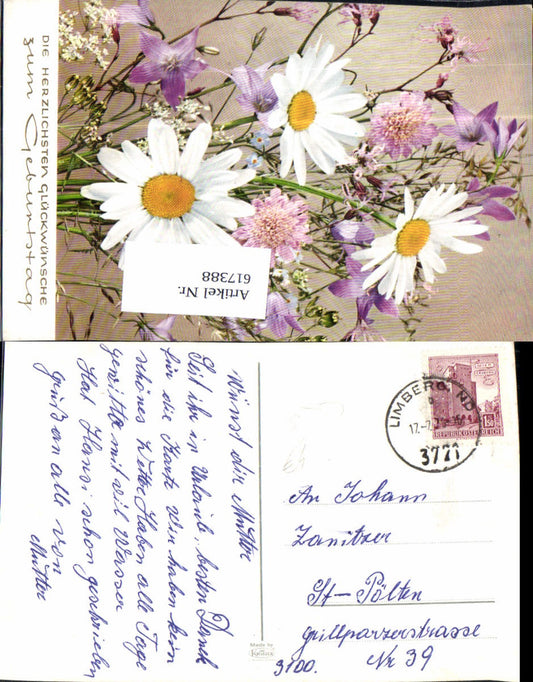 DIE HERZLICHSTEN GLÜCKWÜNSCHE
zum Geburtstag
Artikel Nr.
617388
Wünst dir Mutter
Seit ihr in Urlaub, besten Dank
für die Karte wir haben kein
schönes Wetter Haben alle Tage
gewitter mit vil Wasser
Hat Hansi schon geschrieben
Grüß an alle von
Mutter
LIMBERG, ND
17.-7.
3721
150
REPUBLIK ÖSTERREICH
An Johann
Zanitzer
St-Pölten
Grillparzerstrasse
3100. Nr 39
Made by